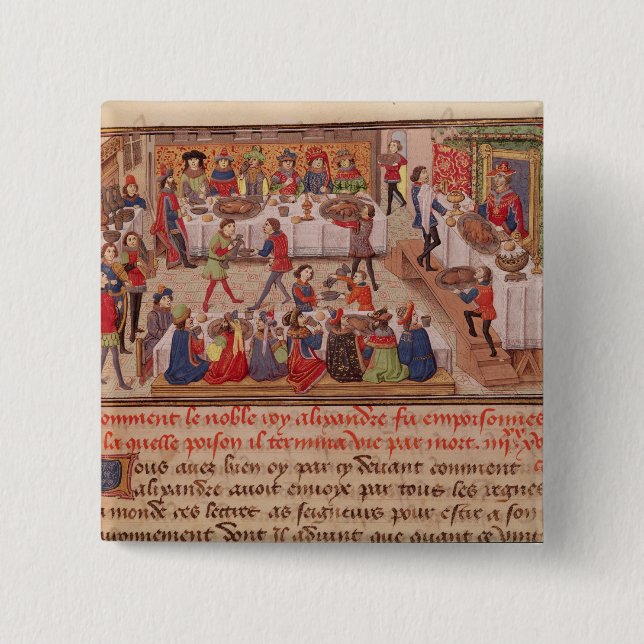 comment le noble roy alixandre fu empoisonnes
la quelle poison il termina vie par mort. iiijxxxv
Vous avez bien oy par cy devant comment
alixandre avoit envoye par tous les regnes
monde ces lettres as seigneurs pour estre a son
dont il advint que quant ce vint